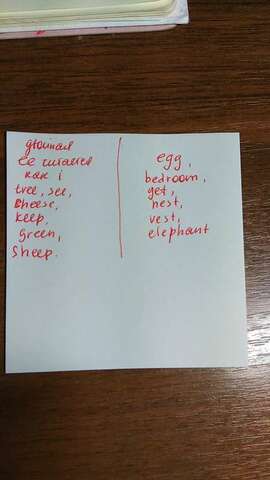 двойная
ee читается
как i
tree, see,
cheese,
keep,
green,
Sheep.
egg,
bedroom,
get,
nest,
vest,
elephant